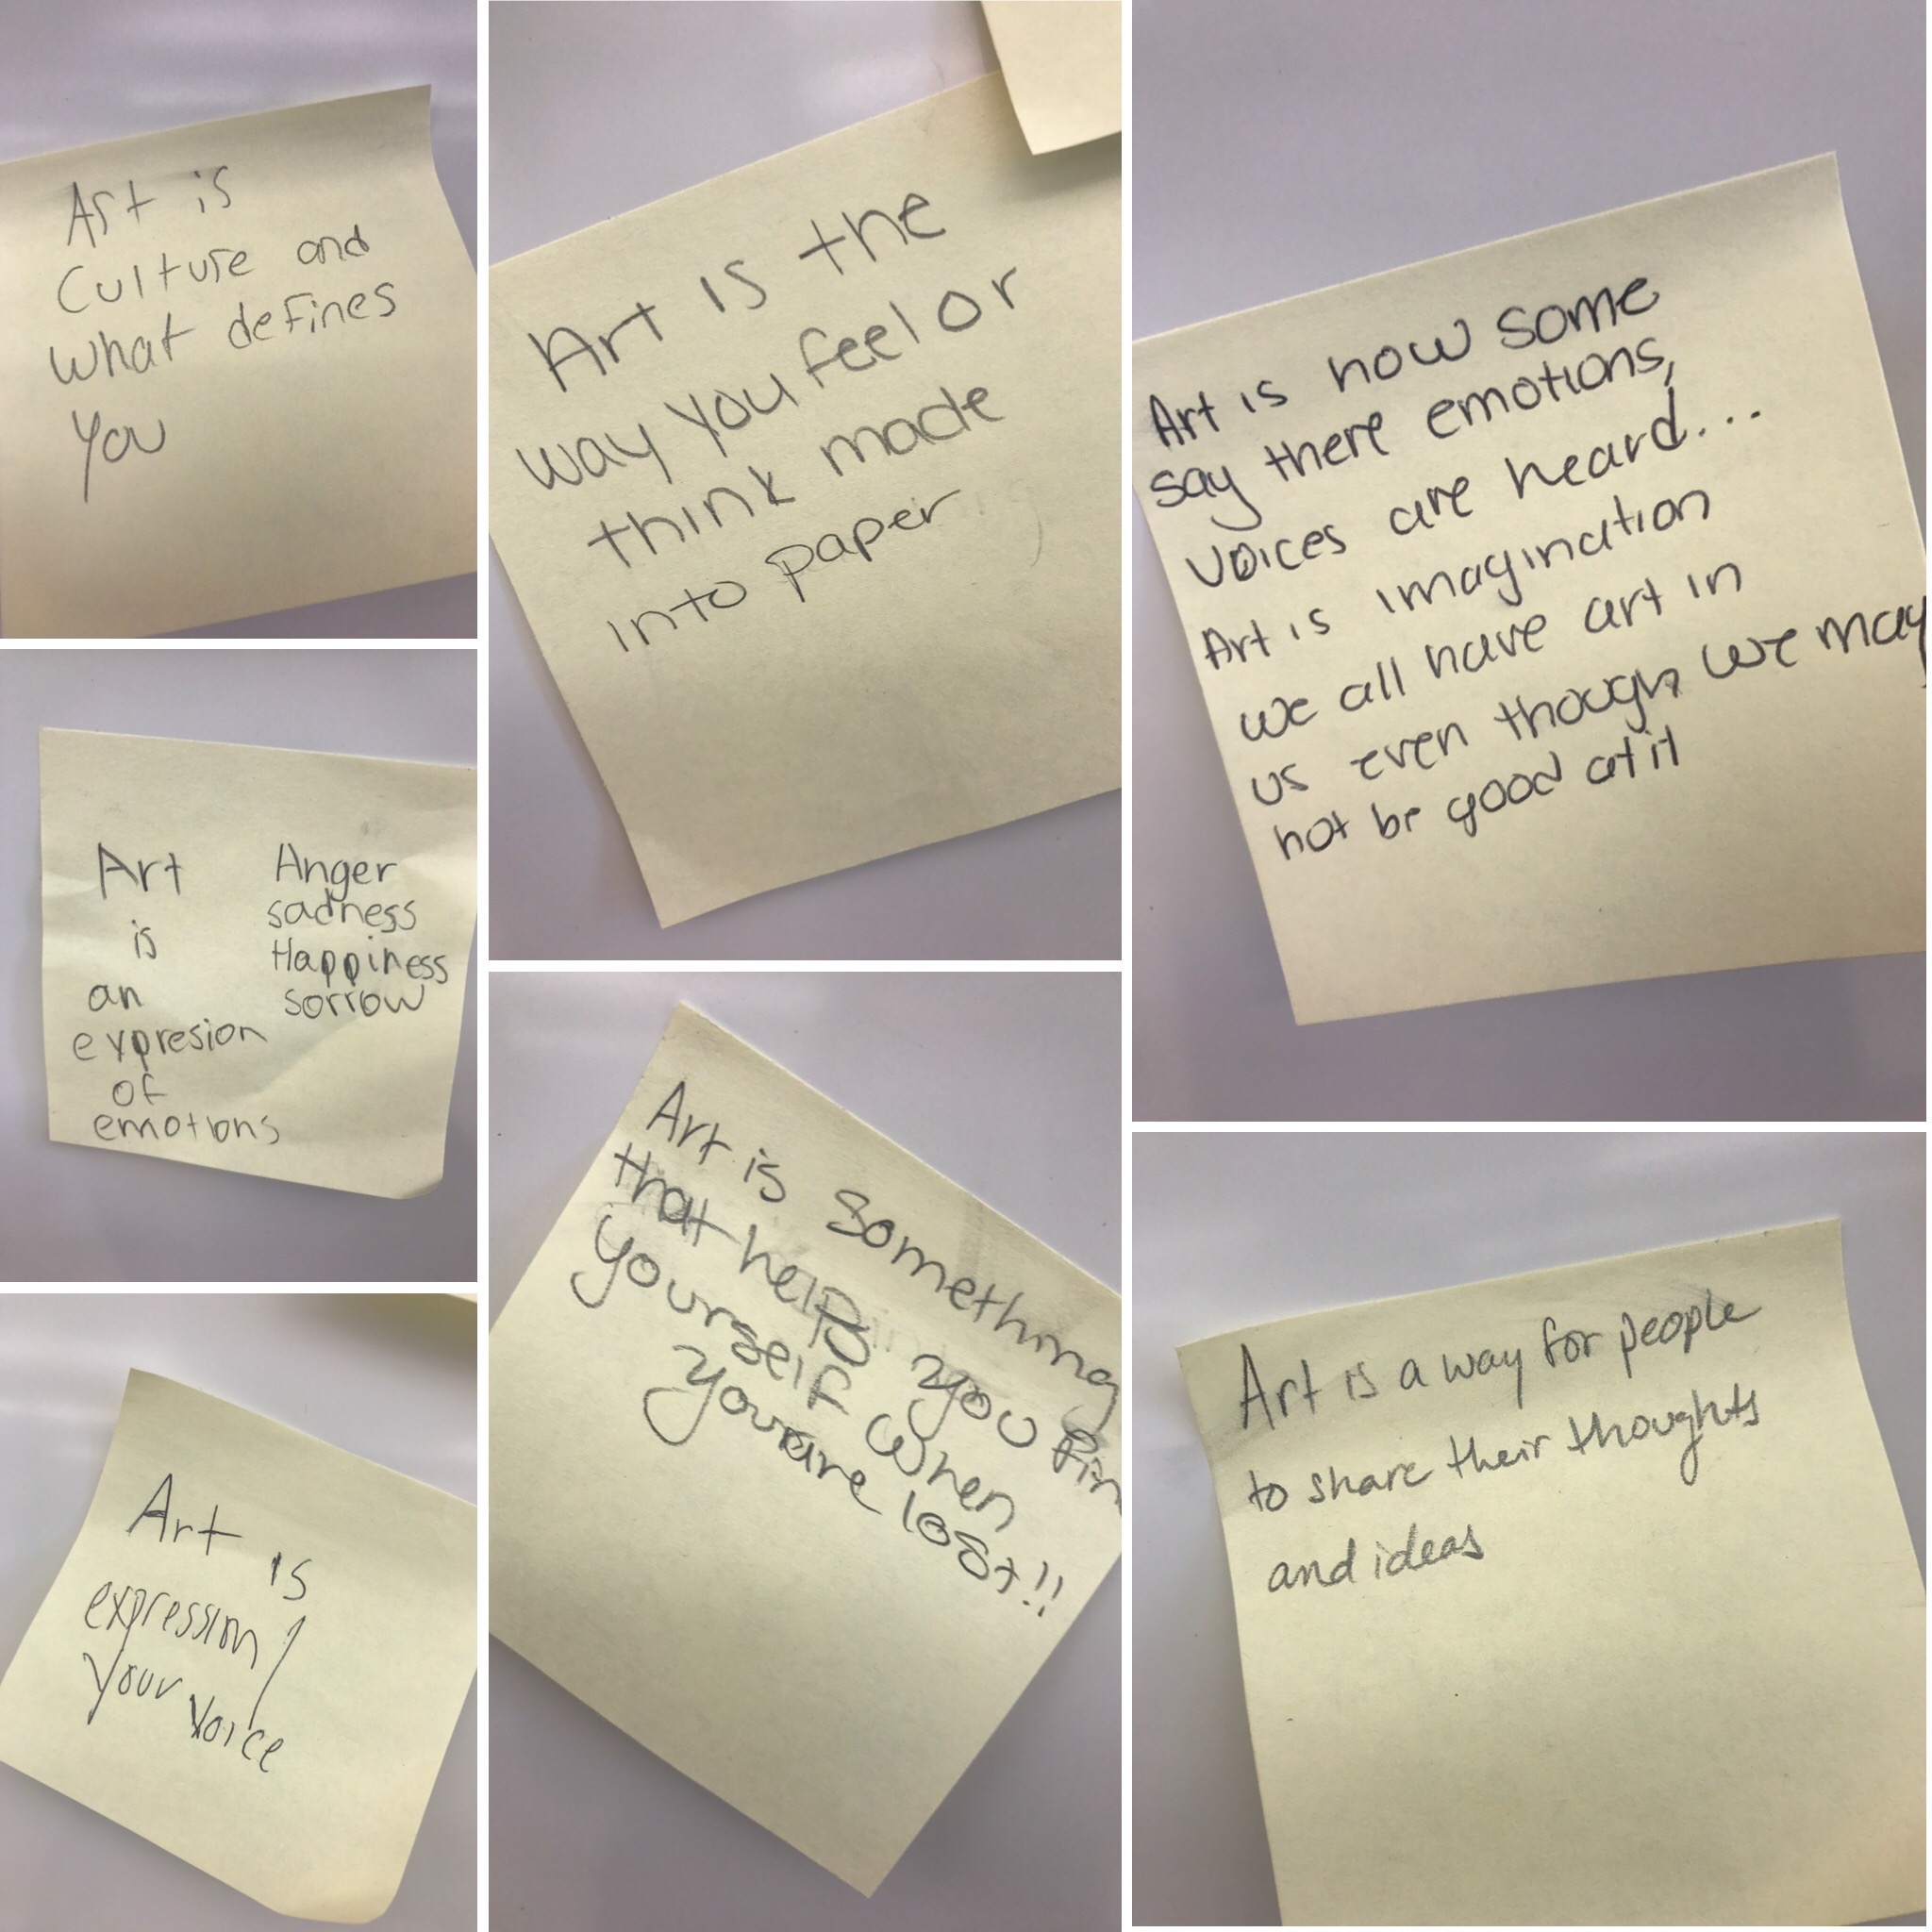 Art is
Culture and
what defines
you
Art
is
an
expresion
of
emotions
Anger
sadness
Happiness
sorrow
Art is
expression/
your voice
Art is the
way you feel or
think made
into paper
Art is something
that helps you fin
yourself when
you are lost!!
Art is how some
say there emotions,
voices are heard...
Art is imagination
we all have art in
us even though we may
not be good at it
Art is a way for people
to share their thoughts
and ideas